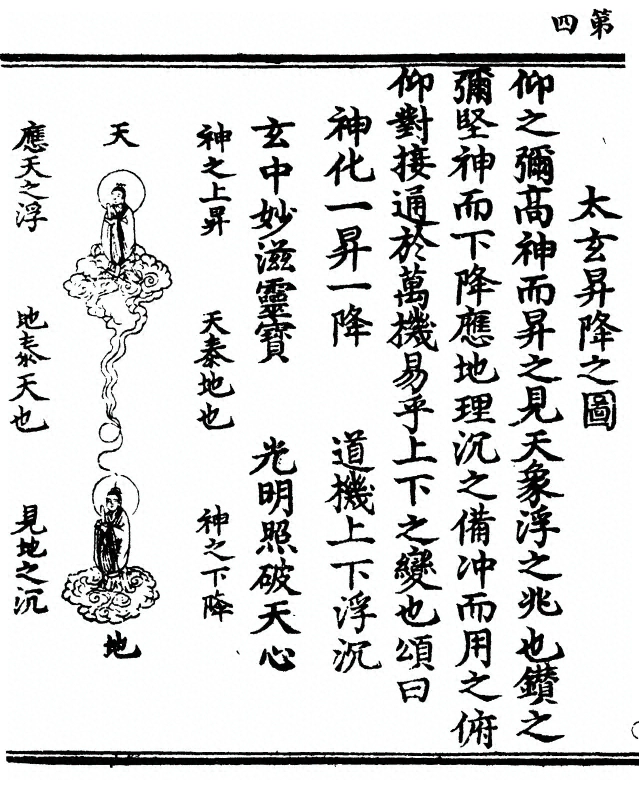 第四
太玄昇降之圖
仰之彌高神而昇之見天象浮之兆也鑚之
彌堅神而下降應地理沉之備冲而用之俯
仰對接通於萬機易乎上下之變也頌曰
神化一昇一降 道機上下浮沉
玄中妙滋靈寶 光明照破天心
神之上昇 天泰地也 神之下降
天
地
應天之浮 地泰天也 見地之沉